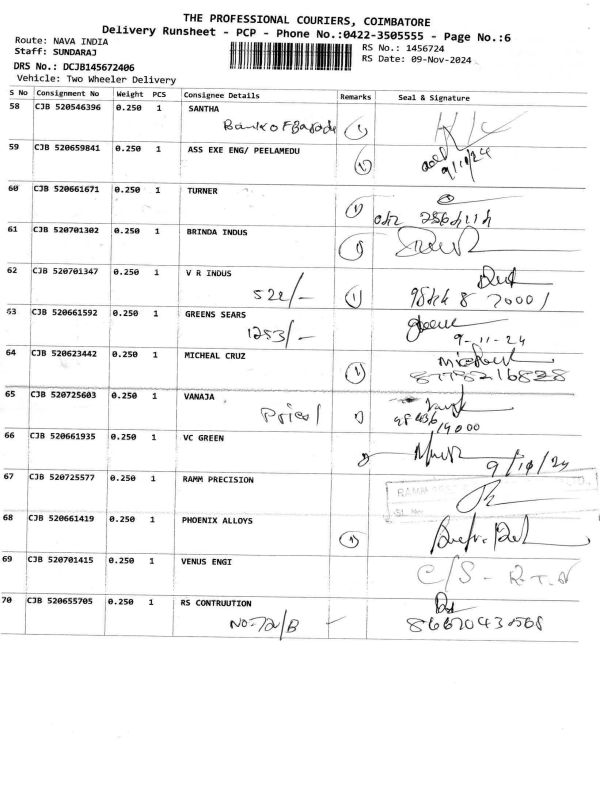 THE PROFESSIONAL COURIERS, COIMBATORE
Delivery Runsheet - PCP - Phone No.:0422-3505555 - Page No.:6
Route: NAVA INDIA
RS No.: 1456724
Staff: SUNDARAJ
RS Date: 09-Nov-2024
DRS No.: DCJB145672406
Vehicle: Two Wheeler Delivery
S No Consignment No Weight PCS Consignee Details Remarks Seal & Signature
58 CJB 520546396 0.250 1 SANTHA
Bank of Baroda 1
59 CJB 520659841 0.250 1 ASS EXE ENG/ PEELAMEDU
9/11/24
60 CJB 520661671 0.250 1 TURNER
1
61 CJB 520701302 0.250 1 BRINDA INDUS
1
62 CJB 520701347 0.250 1 V R INDUS
522/- 1
63 CJB 520661592 0.250 1 GREENS SEARS
1253/- 9-11-24
64 CJB 520623442 0.250 1 MICHEAL CRUZ
1 8778216828
65 CJB 520725603 0.250 1 VANAJA
66 CJB 520661935 0.250 1 VC GREEN
67 CJB 520725577 0.250 1 RAMM PRECISION
RAMM
68 CJB 520661419 0.250 1 PHOENIX ALLOYS
1
69 CJB 520701415 0.250 1 VENUS ENGI
C/S - R.T.O
70 CJB 520655705 0.250 1 RS CONTRUUTION
NO-72/B